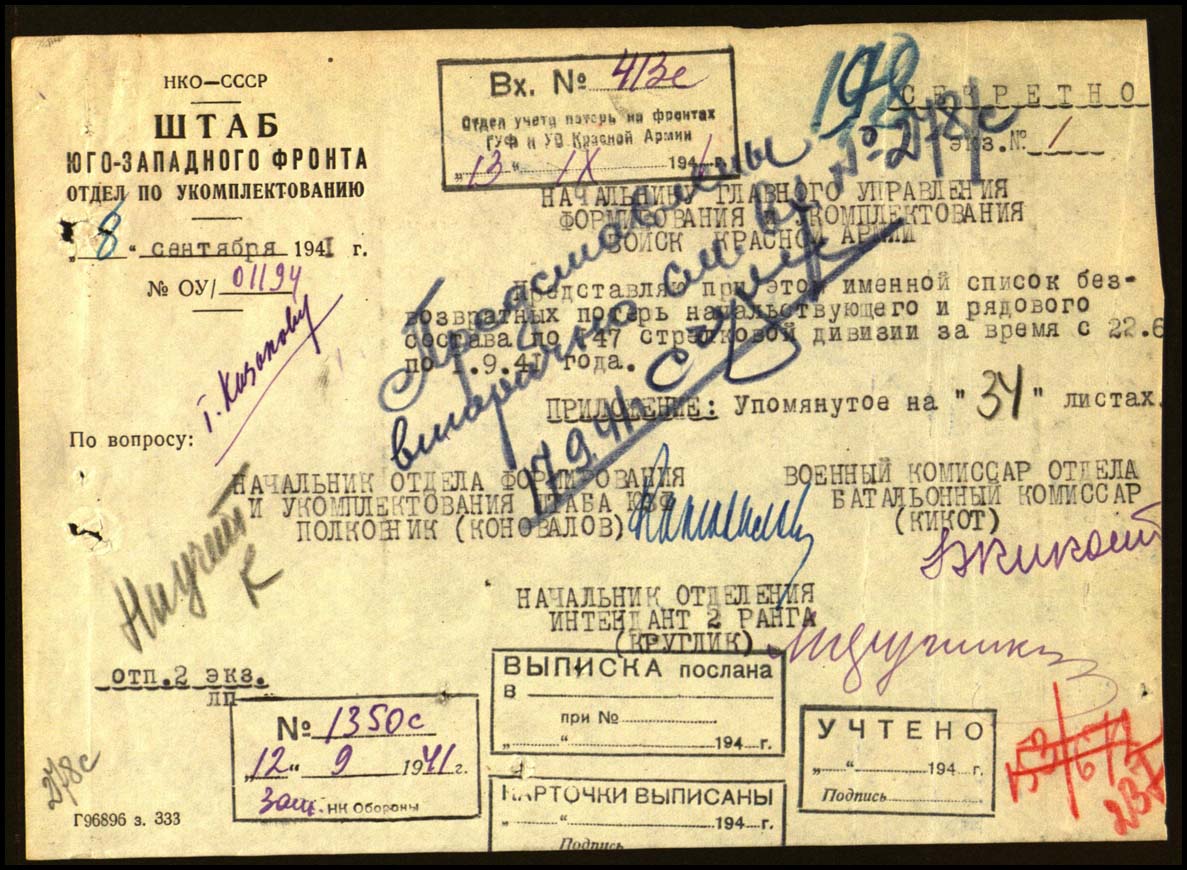 НКО—СССР
ШТАБ
ЮГО-ЗАПАДНОГО ФРОНТА
ОТДЕЛ ПО УКОМПЛЕКТОВАНИЮ
„8“ сентября 1941 г.
№ ОУ/ 01194
По вопросу:
Вх. № 413с
Отдел учета потерь на фронтах
ГУФ и УВ Красной Армии
„13“ IX 1941 г.
198
СЕКРЕТНО
экз.№ 1
НАЧАЛЬНИКУ ГЛАВНОГО УПРАВЛЕНИЯ
ФОРМИРОВАНИЯ И УКОМПЛЕКТОВАНИЯ
ВОЙСК КРАСНОЙ АРМИИ
Представляю при этом именной список без-
возвратных потерь начальствующего и рядового
состава по 147 стрелковой дивизии за время с 22.6
по 1.9.41 года.
ПРИЛОЖЕНИЕ: Упомянутое на "34" листах.
Представлены
вторично см вх №278с
17.9.41г.
г. Казакову
НАЧАЛЬНИК ОТДЕЛА ФОРМИРОВАНИЯ
И УКОМПЛЕКТОВАНИЯ ШТАБА ЮЗФ
ПОЛКОВНИК (КОНОВАЛОВ)
ВОЕННЫЙ КОМИССАР ОТДЕЛА
БАТАЛЬОННЫЙ КОМИССАР
(КИКОТ)
НАЧАЛЬНИК ОТДЕЛЕНИЯ
ИНТЕНДАНТ 2 РАНГА
(КРУГЛИК)
отп.2 экз.
лп
№ 1350с
„12“ 9 1941 г.
Зам. НК Обороны
ВЫПИСКА послана
в
при №
„ “ 194 г.
КАРТОЧКИ ВЫПИСАНЫ
„ “ 194 г.
Подпись
УЧТЕНО
„ “ 194 г.
Подпись
278с
Г96896 з. 333